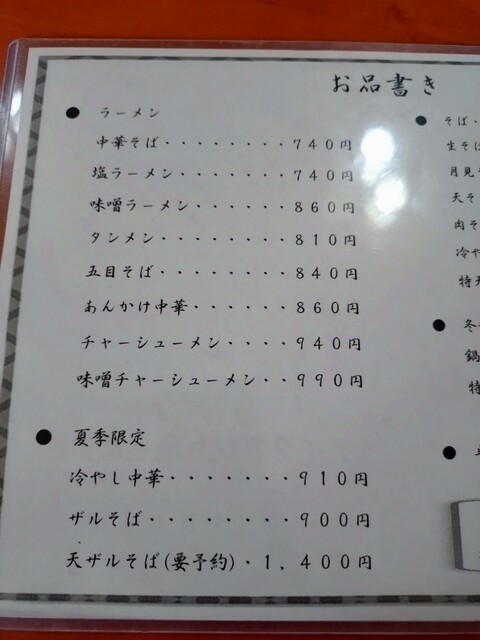 お品書き
● ラーメン
中華そば・・・・・・・・７４０円
塩ラーメン・・・・・・・７４０円
味噌ラーメン・・・・・・８６０円
タンメン・・・・・・・・８１０円
五目そば・・・・・・・・８４０円
あんかけ中華・・・・・・８６０円
チャーシューメン・・・・９４０円
味噌チャーシューメン・・９９０円
● 夏季限定
冷やし中華・・・・・・・９１０円
ザルそば・・・・・・・・９００円
天ザルそば(要予約)・１，４００円
● そば・
生そば
月見そ
天そ
肉そ
冷や
特天
● 冬
鍋
特
●